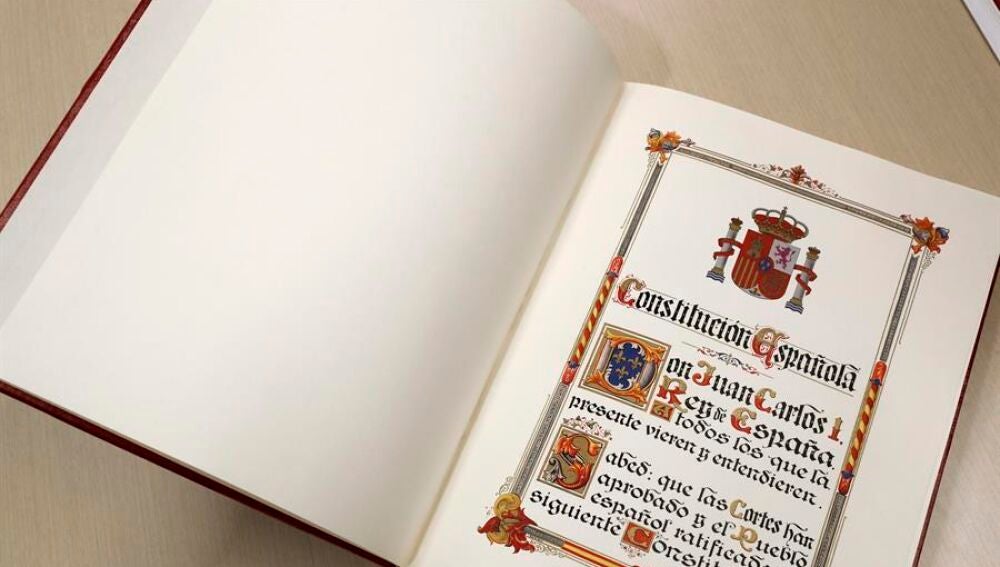 Constitución Española
Don Juan Carlos I
Rey de España
a todos los que la
presente vieren y entendieren.
Sabed: que las Cortes han
aprobado y el Pueblo
español ratificado
siguiente